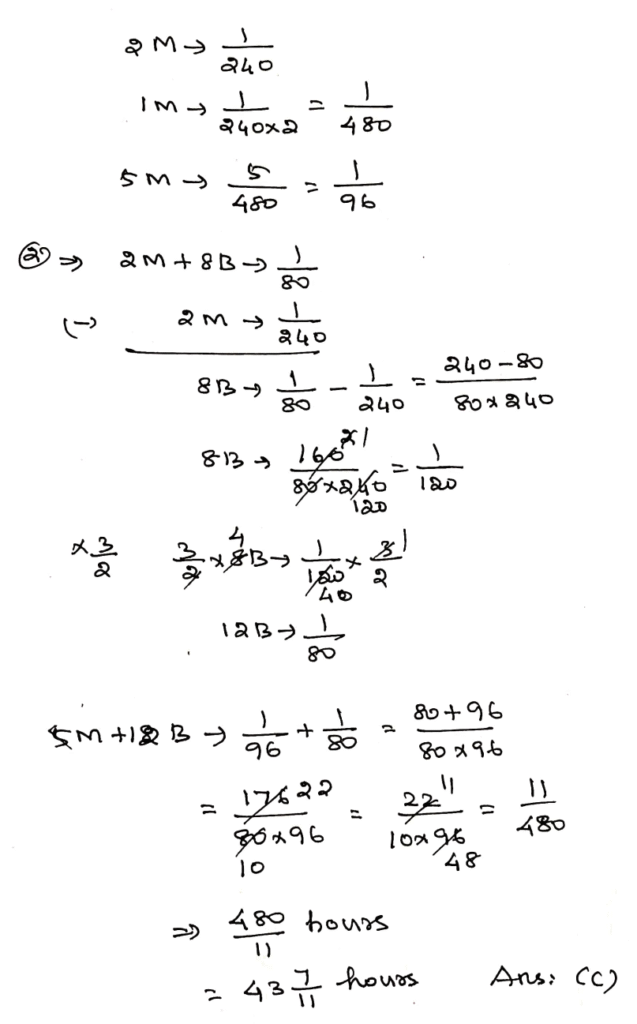 2M → 1/240
1M → 1/240×2 = 1/480
5M → 5/480 = 1/96
② ⇒ 2M + 8B → 1/80
(-) 2M → 1/240
8B → 1/80 - 1/240 = 240-80/80×240
8B → 160 2 1/80×240 120 = 1/120
×3/2 3/2 × 4 8B → 1/120 40 × 3 1/2
12B → 1/80
5M + 12B → 1/96 + 1/80 = 80+96/80×96
= 176 22/80×96 10 = 22 11/10×96 48 = 11/480
⇒ 480/11 hours
= 43 7/11 hours Ans: (C)